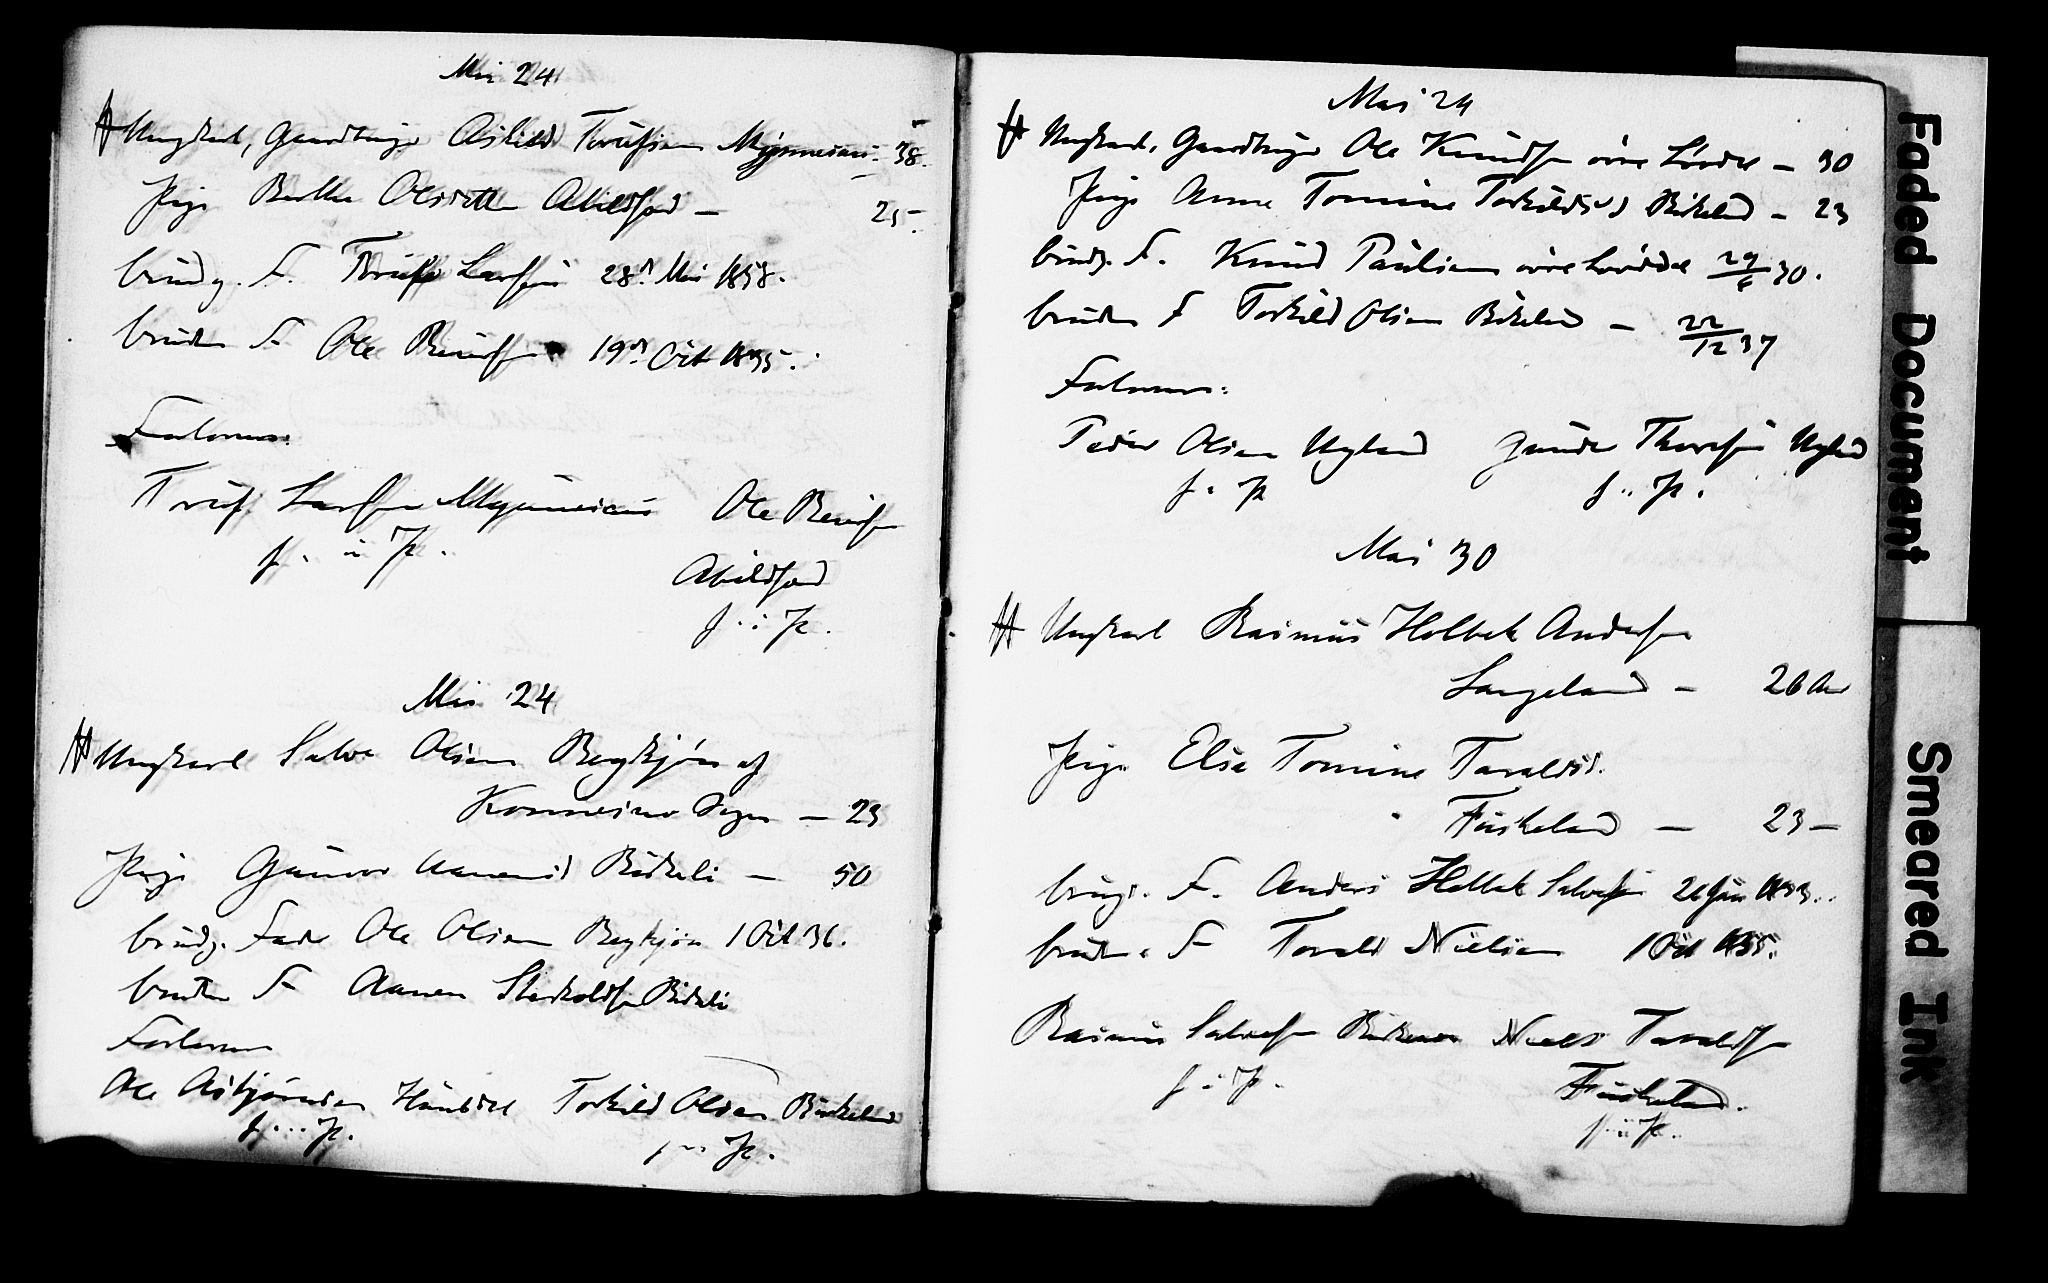 Mai 24
Ungkarl, Gaardbruger Askild Torufsen Myrmesuni 38.
Pige Berthe Olsdatter Abildsød — 25.
brudg. F. Toruf Larsen 28d Mai 1838.
bruden F Ole Berntsen 19d Oct 1835.
Forlovere:
Toruf Larssen Ole Berntsen
f. i. P.
Abildsød
f. i. P.
Mai 24
Ungkarl Salve Olsen Bergkjøn af
Konnesmo Sogn — 23
Pige Gunvor Aanensd Birkeli — 50
brudg. Fader Ole Olsen Bergkjøn 1 Oct 36.
bruden F Aanen Sterkoldsen Birkeli
Forlovere
Ole Asbjørnsen Torkild Olsen Birkeland
f. i. P. f. i. P.
Mai 24
Ungkarl, Gaardbruger Ole Knudsen øvre Løvdal — 30
Pige Anne Tomine Torkildsd Birkeland — 23
brudg. F. Knud Paulsen øvre Løvdal 29/6 30.
bruden F Torkild Olsen Birkeland — 22/12 37
Forlovere:
Peder Olsen Ugland Gunder Thorsen Ugland
f. i. P. f. i. P.
Mai 30
Ungkarl Rasmus Holbek Andersen
Langeland — 26 Aar
Pige Elise Tomine Tavaldsd.
Fuskeland — 23 —
brudg. F. Anders Holbek Salvesen 26 Jun 1833.
bruden F Tavald Nielsen 1 Oct 1835.
Rasmus Salvesen Niels Tavaldsen
f. i. P. Fuskeland.
f. i. P.
Faded Document
Smeared Ink